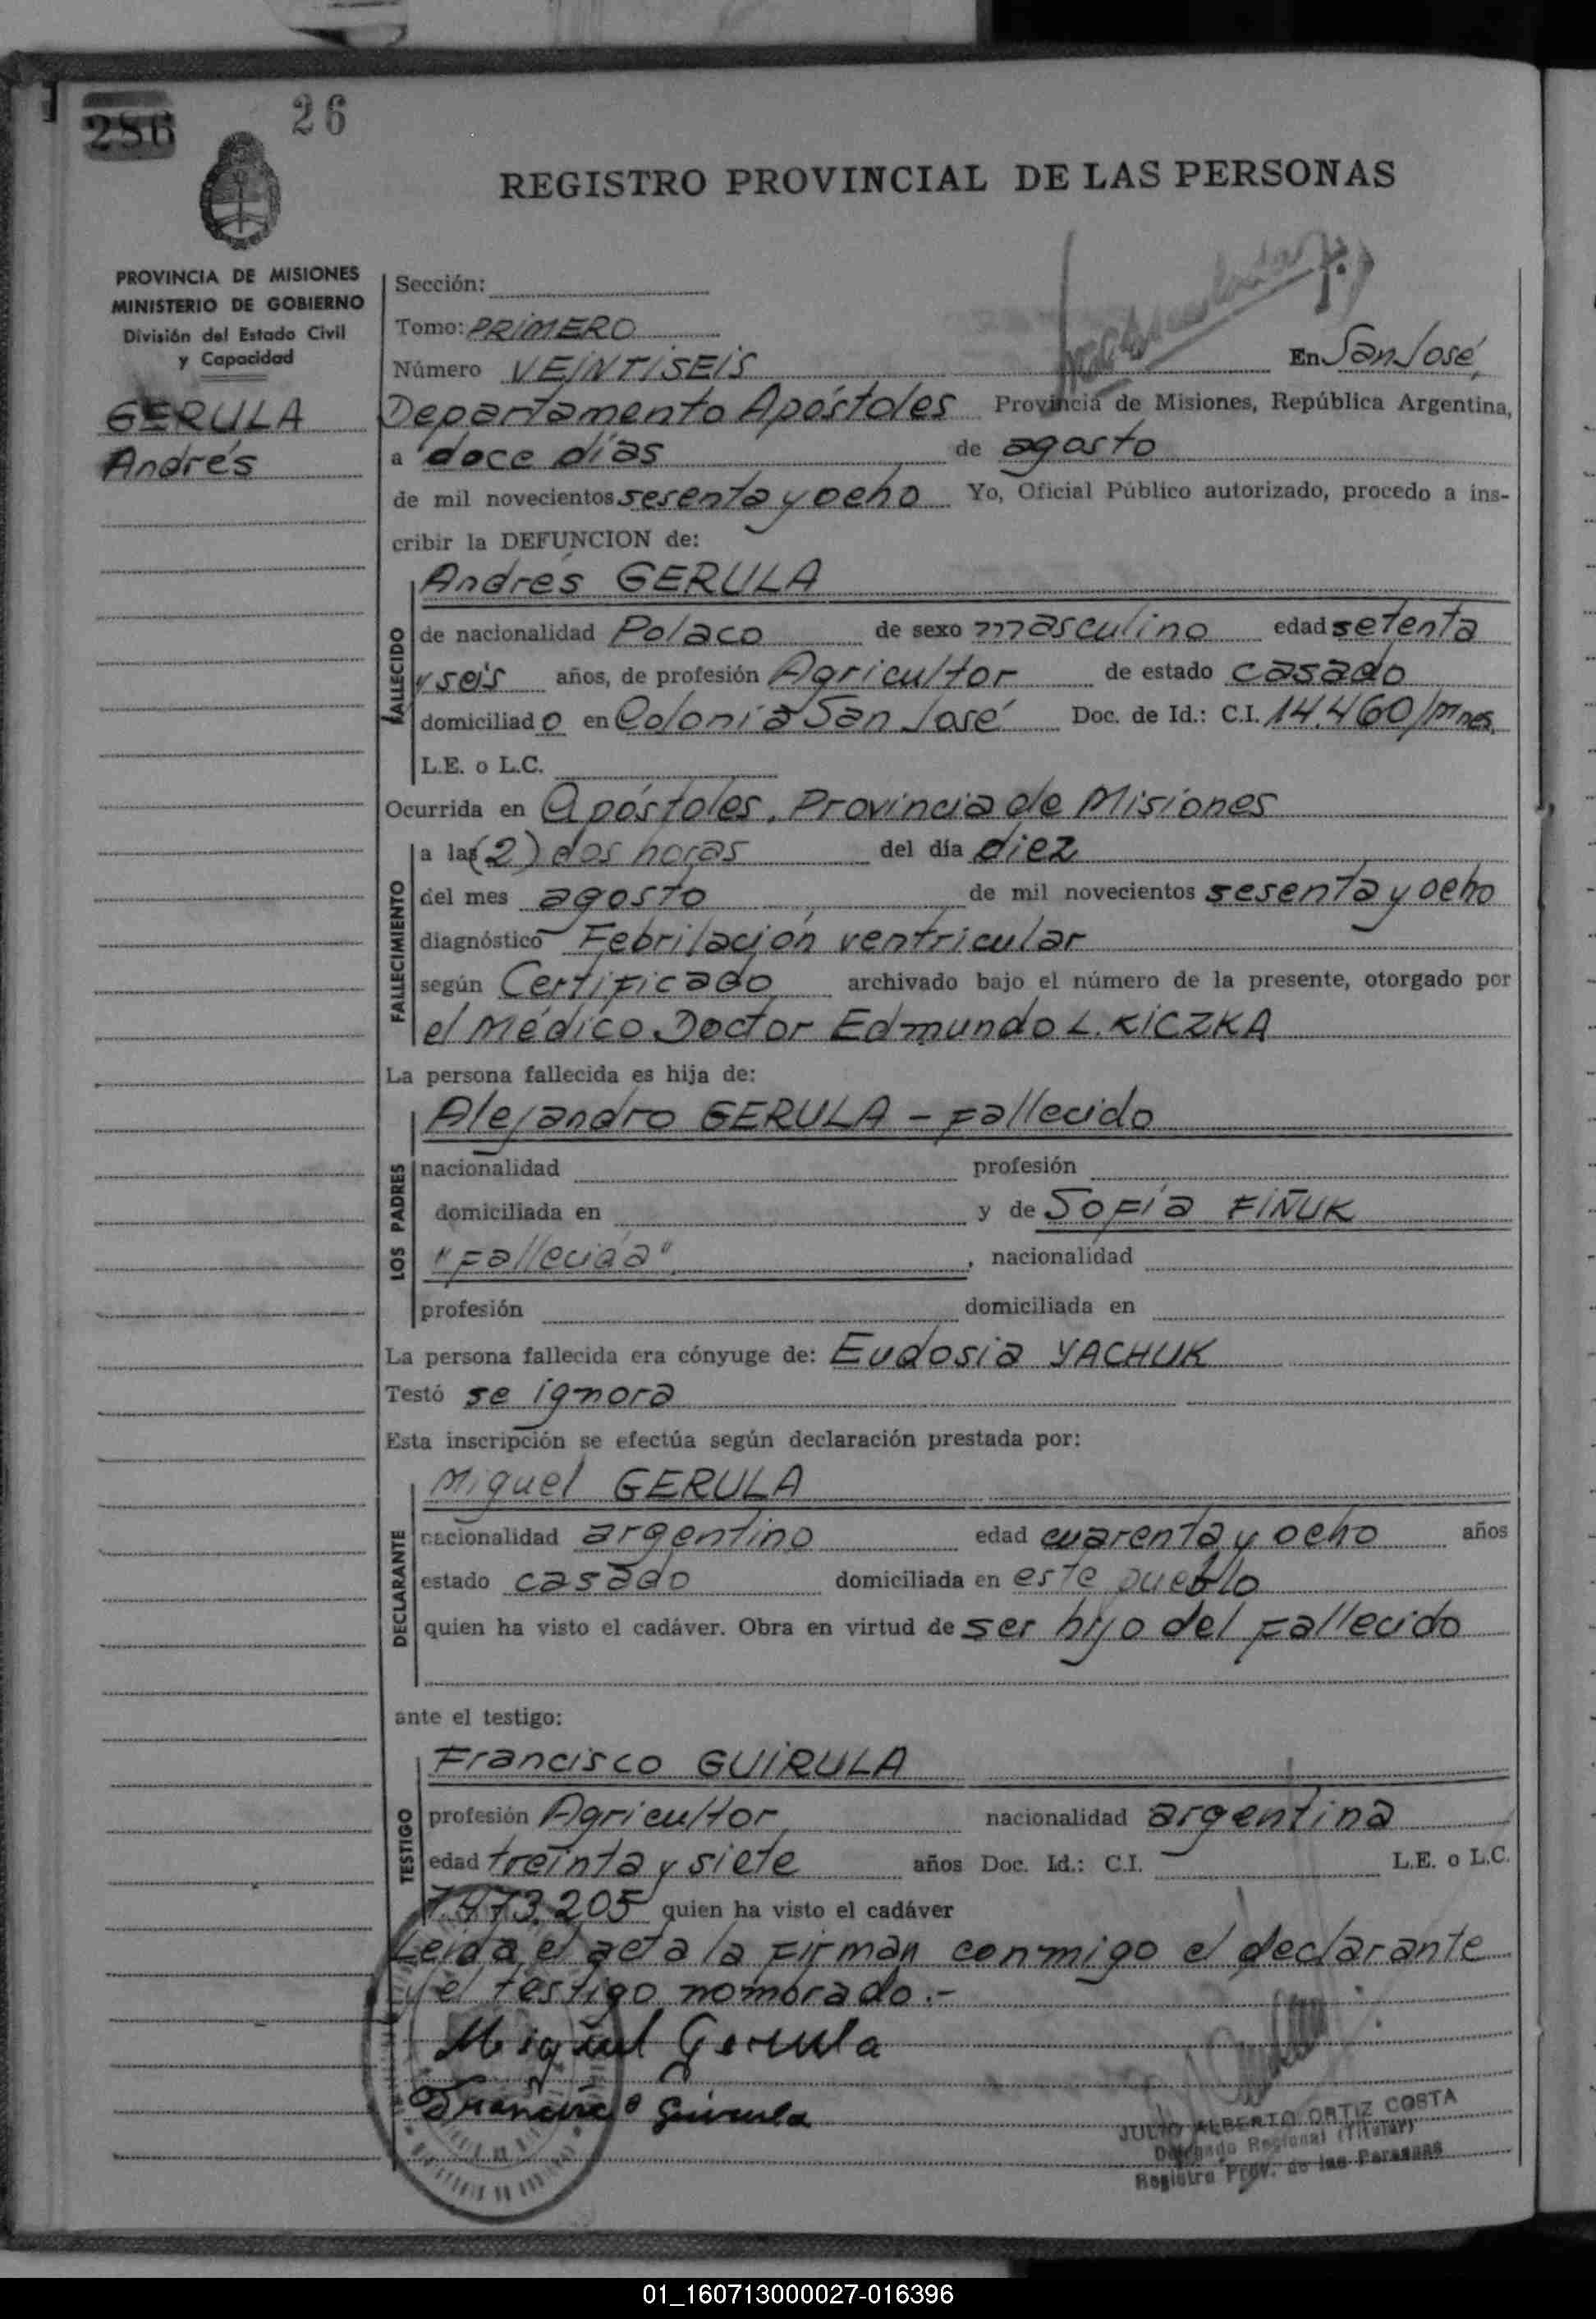 286
26
REGISTRO PROVINCIAL DE LAS PERSONAS
PROVINCIA DE MISIONES
MINISTERIO DE GOBIERNO
División del Estado Civil
y Capacidad
GERULA
Andrés
Sección:
Tomo: PRIMERO
Número VEINTISEIS En San José,
Departamento Apóstoles Provincia de Misiones, República Argentina,
a doce días de agosto
de mil novecientos sesenta y ocho Yo, Oficial Público autorizado, procedo a ins-
cribir la DEFUNCION de:
FALLECIDO
Andrés GERULA
de nacionalidad Polaco de sexo masculino edad setenta
y seis años, de profesión Agricultor de estado casado
domiciliado en Colonia San José Doc. de Id.: C.I. 14.460/Mnes,
L.E. o L.C.
Ocurrida en Apóstoles, Provincia de Misiones
FALLECIMIENTO
a las (2) dos horas del día diez
del mes agosto de mil novecientos sesenta y ocho
diagnóstico Febrilación ventricular
según Certificado archivado bajo el número de la presente, otorgado por
el Médico Doctor Edmundo L. KICZKA
La persona fallecida es hija de:
LOS PADRES
Alejandro GERULA - fallecido
nacionalidad profesión
domiciliada en y de Sofía FIÑUK
"fallecida", nacionalidad
profesión domiciliada en
La persona fallecida era cónyuge de: Eudosia YACHUK
Testó se ignora
Esta inscripción se efectúa según declaración prestada por:
DECLARANTE
Miguel GERULA
nacionalidad argentino edad cuarenta y ocho años
estado casado domiciliada en este pueblo
quien ha visto el cadáver. Obra en virtud de ser hijo del fallecido
ante el testigo:
TESTIGO
Francisco GUIRULA
profesión Agricultor nacionalidad argentina
edad treinta y siete años Doc. Id.: C.I. L.E. o L.C.
7.473.205 quien ha visto el cadáver
Leida el acta la firman conmigo el declarante
y el testigo nombrado.-
Miguel Gerula
Francisco Guirula
JULIO ALBERTO ORTIZ COSTA
Delegado Regional (Titular)
Registro Prov. de las Personas
01_160713000027-016396